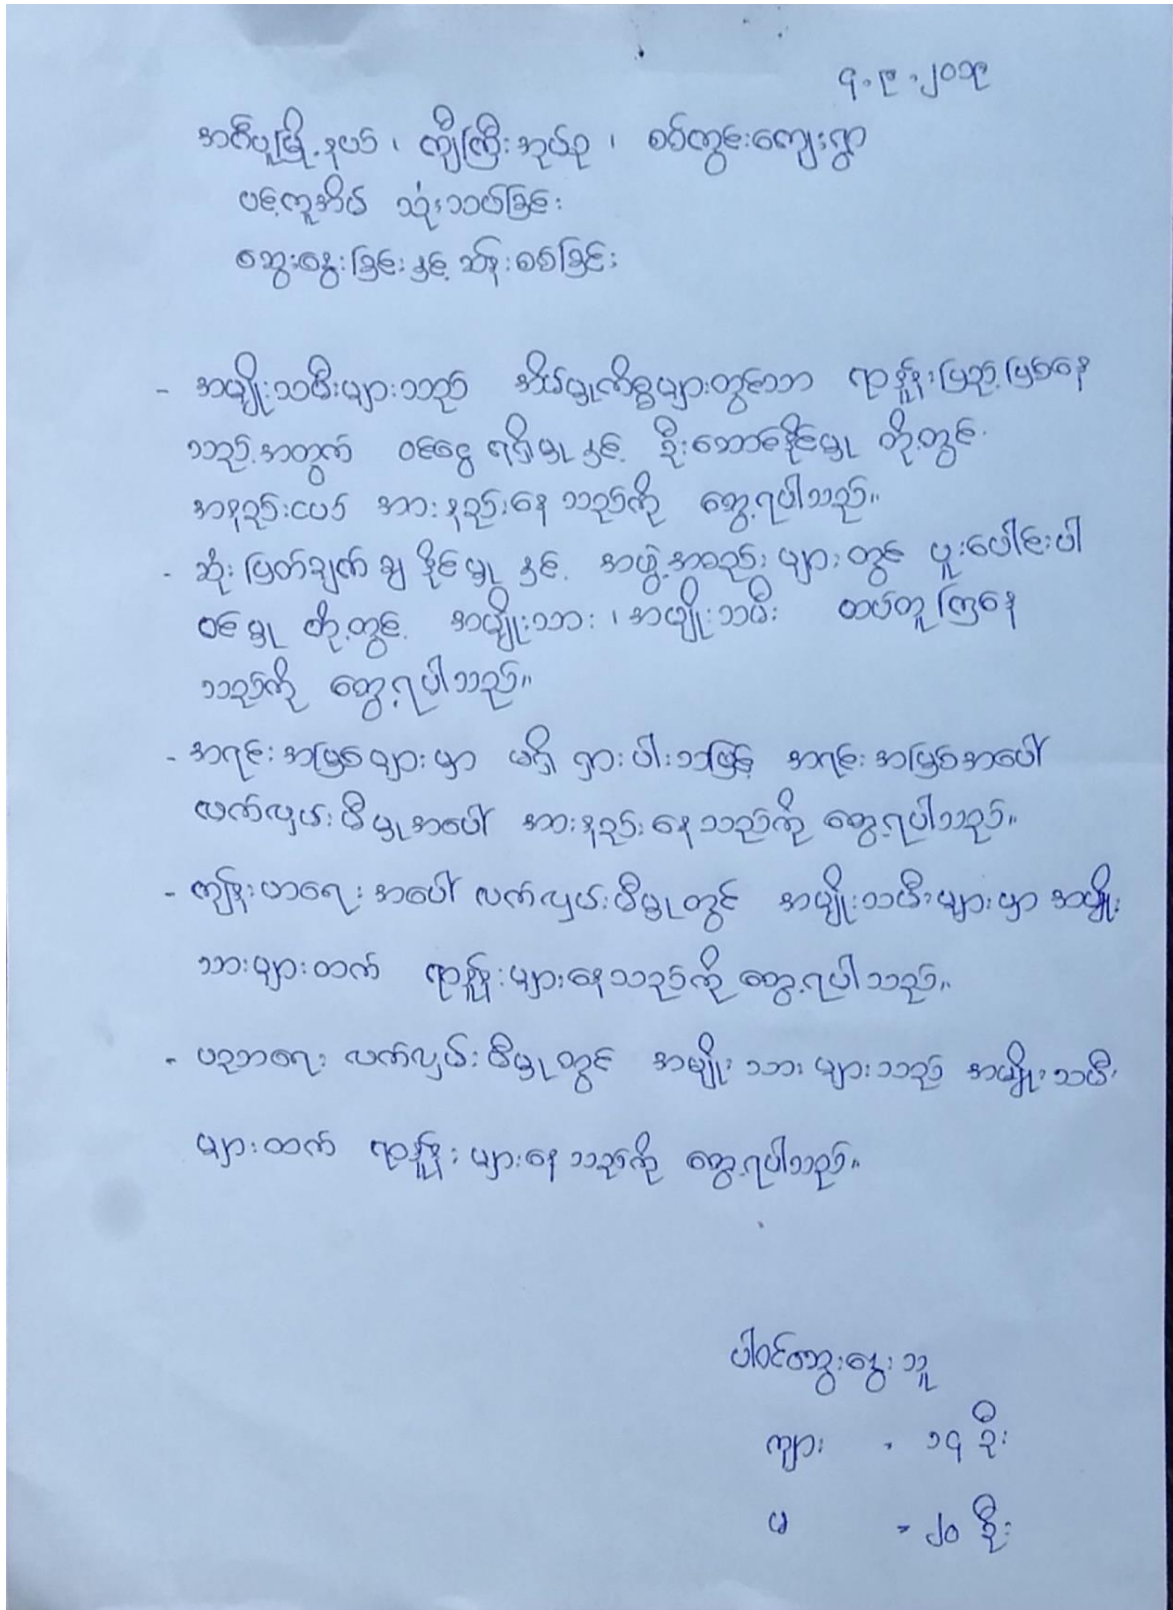 ၄.၉.၂၀၁၉
အင်္ဂပူမြို့နယ်၊ ကျီကြီးအုပ်စု၊ စစ်ကွင်းကျေးရွာ
ပင့်ကူအိမ် သုံးသပ်ခြင်း
ဆွေးနွေးခြင်းနှင့် ဆန်းစစ်ခြင်း
- အမျိုးသမီးများသည် အိမ်မှုကိစ္စများတွင်သာ ရာနှုန်းပြည့်ဖြစ်နေ
သည့်အတွက် ဝင်ငွေ ရရှိမှုနှင့် ဦးဆောင်နိုင်မှု တို့တွင်
အနည်းငယ် အားနည်းနေသည်ကို တွေ့ရပါသည်။
- ဆုံးဖြတ်ချက်ချနိုင်မှုနှင့် အဖွဲ့အစည်းများတွင် ပူးပေါင်းပါ
ဝင်မှု တို့တွင် အမျိုးသား၊ အမျိုးသမီး ထပ်တူကြနေ
သည်ကို တွေ့ရပါသည်။
- အရင်းအမြစ်များမှာ မရှိရှားပါးသဖြင့် အရင်းအမြစ်အပေါ်
လက်လှမ်းမီမှုအပေါ် အားနည်းနေသည်ကို တွေ့ရပါသည်။
- ကျန်းမာရေးအပေါ် လက်လှမ်းမီမှုတွင် အမျိုးသမီးများမှာ အမျိုး
သားများထက် ရာနှုန်းများနေသည်ကို တွေ့ရပါသည်။
- ပညာရေး လက်လှမ်းမီမှုတွင် အမျိုးသားများသည် အမျိုးသမီး
များထက် ရာနှုန်းများနေသည်ကို တွေ့ရပါသည်။
ပါဝင်ဆွေးနွေးသူ
ကျား - ၁၄ ဦး
မ - ၂၀ ဦး